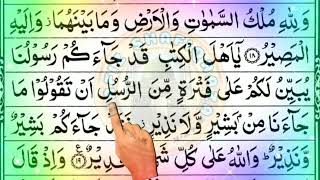 وَلِلّٰهِ مُلْكُ السَّمٰوٰتِ وَالْاَرْضِ وَمَا بَيْنَهُمَا ۫ وَاِلَيْهِ
الْمَصِيْرُ ﴿۱۸﴾ يٰۤاَهْلَ الْكِتٰبِ قَدْ جَآءَكُمْ رَسُوْلُنَا
يُبَيِّنُ لَكُمْ عَلٰى فَتْرَةٍ مِّنَ الرُّسُلِ اَنْ تَقُوْلُوْا مَا
جَآءَنَا مِنْۢ بَشِيْرٍ وَّلَا نَذِيْرٍ ۫ فَقَدْ جَآءَكُمْ بَشِيْرٌ
وَّنَذِيْرٌ ؕ وَاللّٰهُ عَلٰى كُلِّ شَىْءٍ قَدِيْرٌ ﴿۱۹﴾ وَاِذْ قَالَ